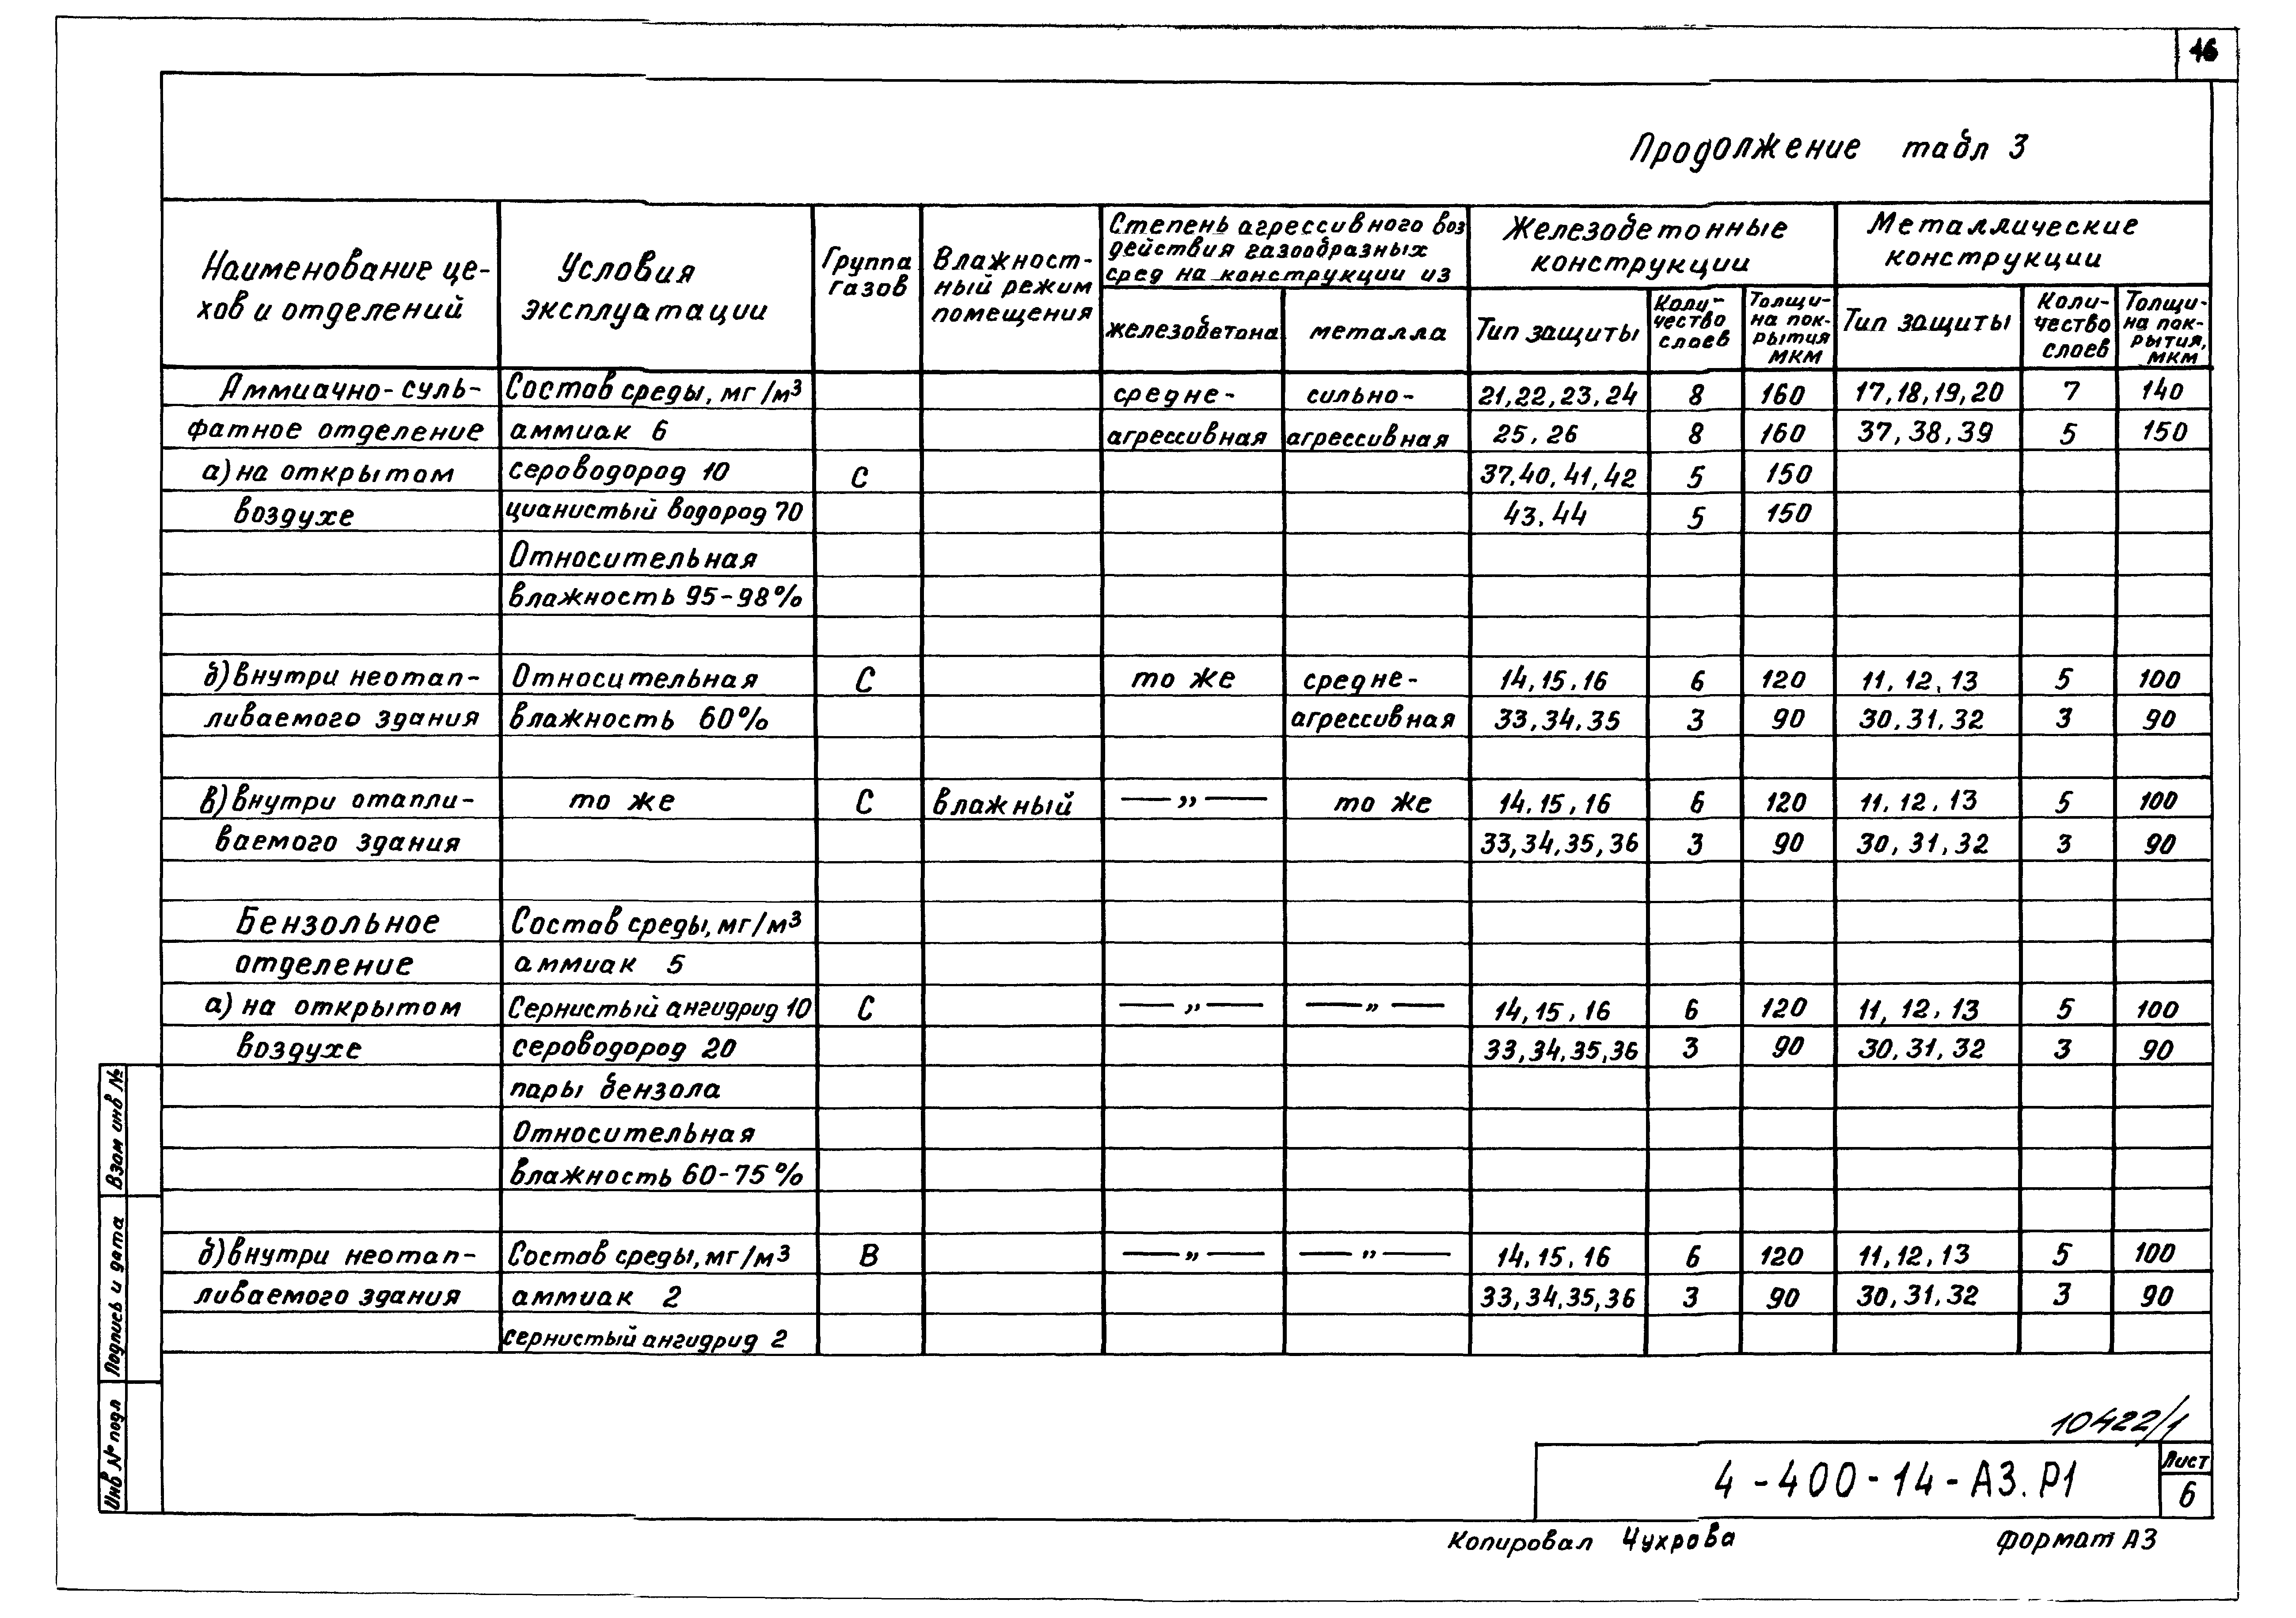 16
Продолжение табл 3
Наименование це-
хов и отделений
Условия
эксплуатации
Группа
газов
Влажност-
ный режим
помещения
Степень агрессивного воз
действия газообразных
сред на конструкции из
железобетона
металла
Железобетонные
конструкции
Тип защиты
Коли-
чество
слоев
Толщи-
на пок-
рытия
мкм
Металлические
конструкции
Тип защиты
Коли-
чество
слоев
Толщи-
на пок-
рытия,
мкм
Аммиачно-суль- Состав среды, мг/м³ средне- сильно- 21,22,23,24 8 160 17,18,19,20 7 140
фатное отделение аммиак 6 агрессивная агрессивная 25, 26 8 160 37, 38, 39 5 150
а) на открытом сероводород 10 С 37,40,41,42 5 150
воздухе цианистый водород 70 43,44 5 150
Относительная
влажность 95-98%
б) внутри неотап- Относительная С то же средне- 14,15,16 6 120 11,12,13 5 100
ливаемого здания влажность 60% агрессивная 33,34,35 3 90 30,31,32 3 90
в) внутри отапли- то же С влажный —„— то же 14,15,16 6 120 11,12,13 5 100
ваемого здания 33,34,35,36 3 90 30,31,32 3 90
Бензольное Состав среды, мг/м³
отделение аммиак 5
а) на открытом Сернистый ангидрид 10 С —„— —„— 14,15,16 6 120 11,12,13 5 100
воздухе сероводород 20 33,34,35,36 3 90 30,31,32 3 90
пары бензола
Относительная
влажность 60-75%
б) внутри неотап- Состав среды, мг/м³ В —„— —„— 14,15,16 6 120 11,12,13 5 100
ливаемого здания аммиак 2 33,34,35,36 3 90 30,31,32 3 90
сернистый ангидрид 2
Взам инв №
Подпись и дата
Инв № подл
10422/1
4-400-14-А3.Р1
Лист
6
Копировал Чухрова
Формат А3